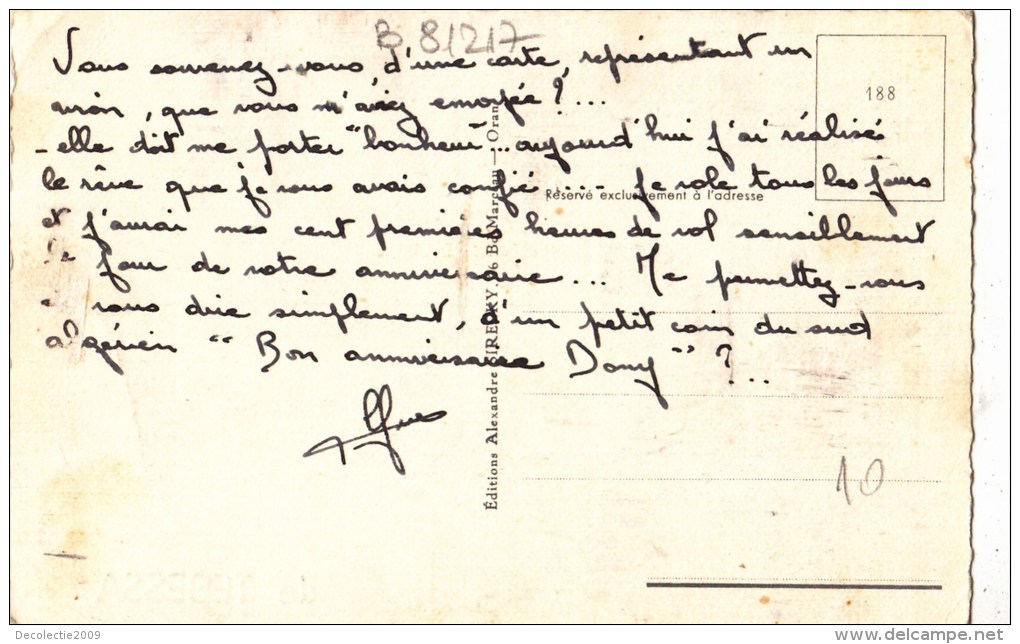 B 81217
Vous souvenez-vous, d'une carte, représentant un
avion, que vous m'aviez envoyée ? ...
- elle doit me porter "bonheur... aujourd'hui j'ai réalisé
le rêve que je vous avais confié .... Je vole tous les jours
et j'aurai mes cent premières heures de vol sensiblement
le jour de votre anniversaire ... Me permettez-vous
vous dire simplement, d'un petit coin du sud
algérien "Bon anniversaire Dony" ? ...
188
Réservé exclusivement à l'adresse
Éditions Alexandre 6 Bd Marceau — Oran
10
TEBESSA
Decolectie2009
delcampe.net